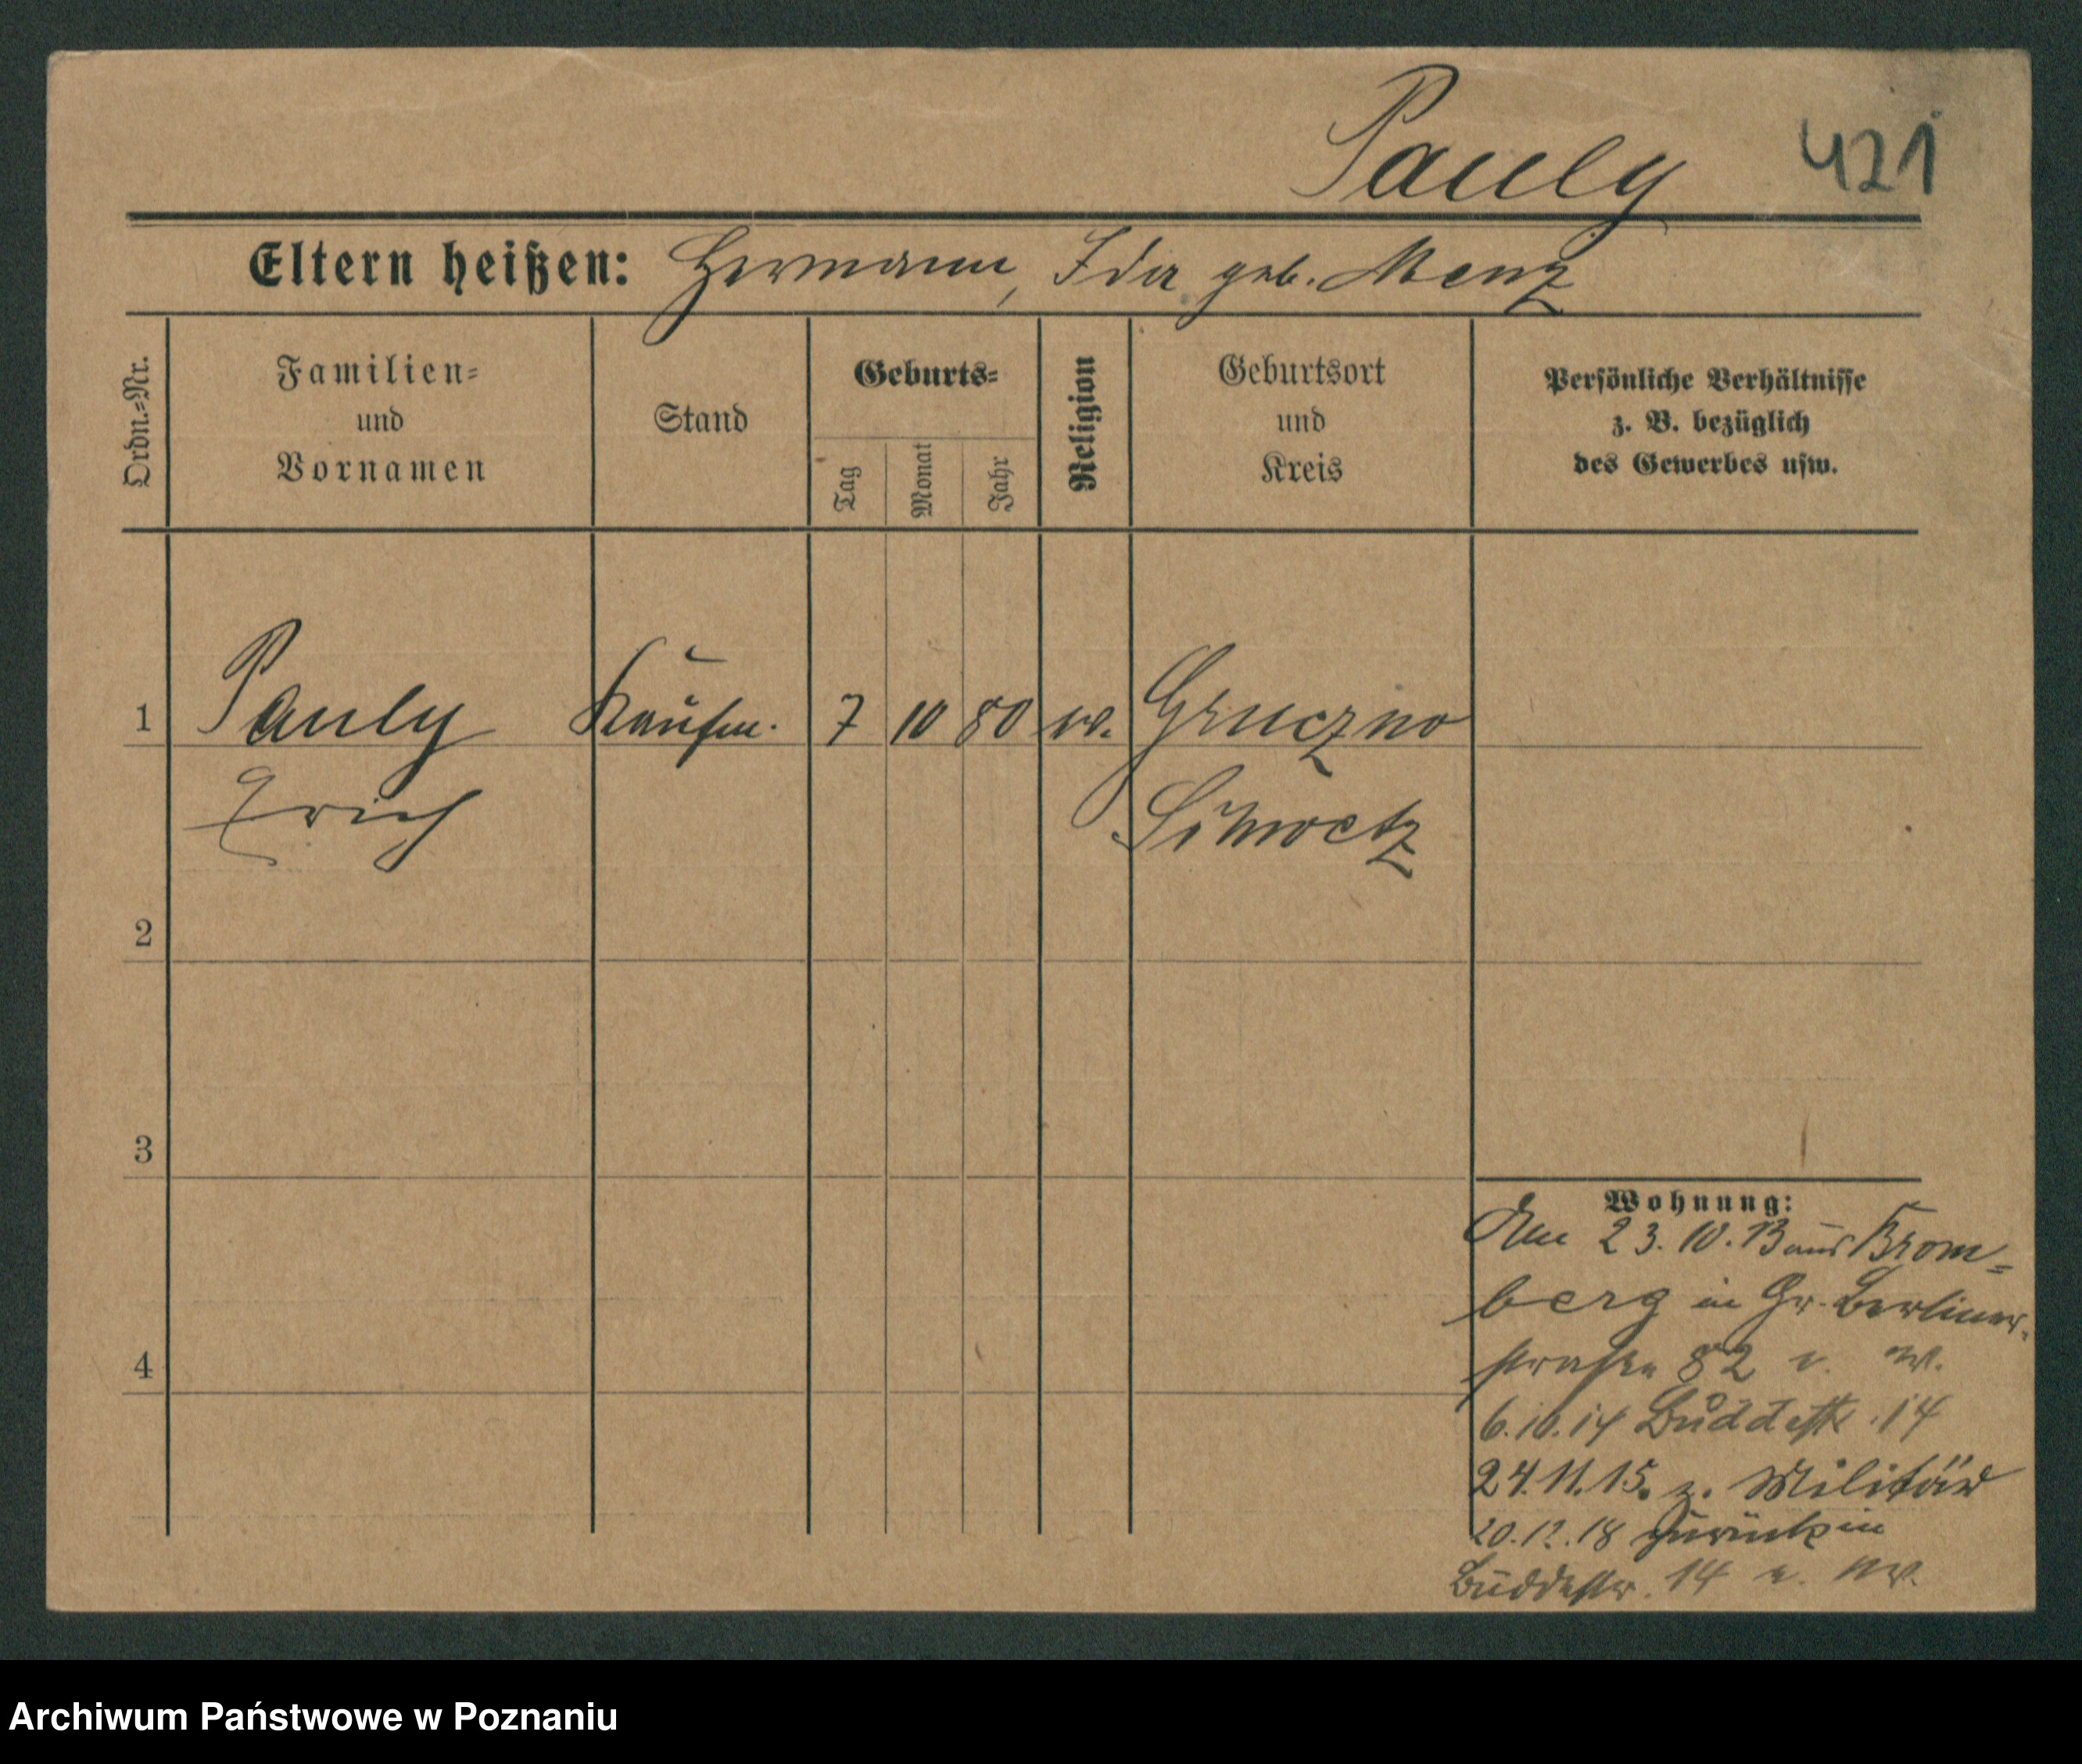 Pauly 421
Eltern heißen: Hermann, Ida geb. Menz
Ordn.=Nr.
Familien=
und
Vornamen
Stand
Geburts=
Tag
Monat
Jahr
Religion
Geburtsort
und
Kreis
Persönliche Verhältnisse
z. B. bezüglich
des Gewerbes usw.
1 Pauly Kaufm. 7 10 80 ev. Gruczno
Erich Schwetz
2
3
4
Wohnung:
Am 23.10.13 aus Brom=
berg in Gr. Berliner-
straße 82
6.10.14 Buddestr. 14
24.11.15. z. Militär
20.12.18 zurück in
Buddestr. 14
Archiwum Państwowe w Poznaniu